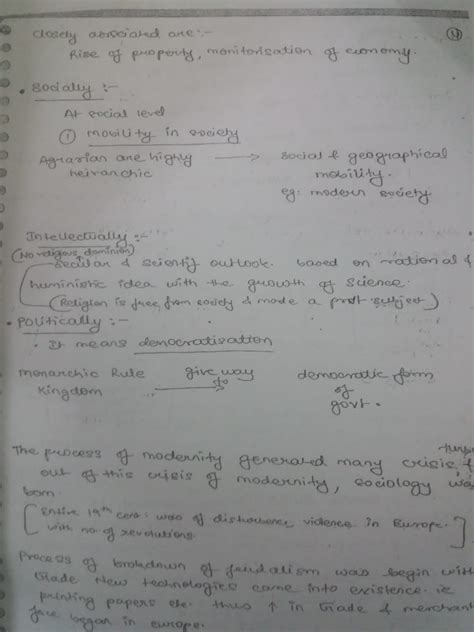 closely associated are:-
④
Rise of property, monitorisation of economy.
• Socially :-
At social level
① Mobility in society
Agrarian are highly heirarchic → social & geographical mobility.
eg: modern society
Intellectually :-
(No religious dominion)
secular & scientif outlook. based on rational &
huministic idea with the growth of science.
(Religion is free from society & made a subject)
• Politically :-
It means democratisation
Monarchic Rule give way democratic form
Kingdom to of
govt.
The process of modernity generated many crisis &
out of this crisis of modernity, sociology was
born.
[Entire 19th cen: was of disturbence, violence in Europe.
with no. of revolutions.]
Process of brokdown of feudalism was begin with
trade New technologies came into existence. ie
printing papers etc. thus ↑ in trade & merchant
began in europe.